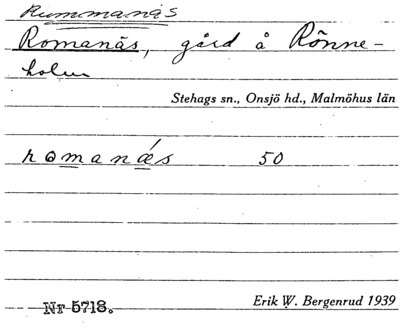 Rummanäs
Romanäs, gård å Rönne-
holm
Stehags sn., Onsjö hd., Malmöhus län
romanǽs 50
Nr 5718.
Erik W. Bergenrud 1939